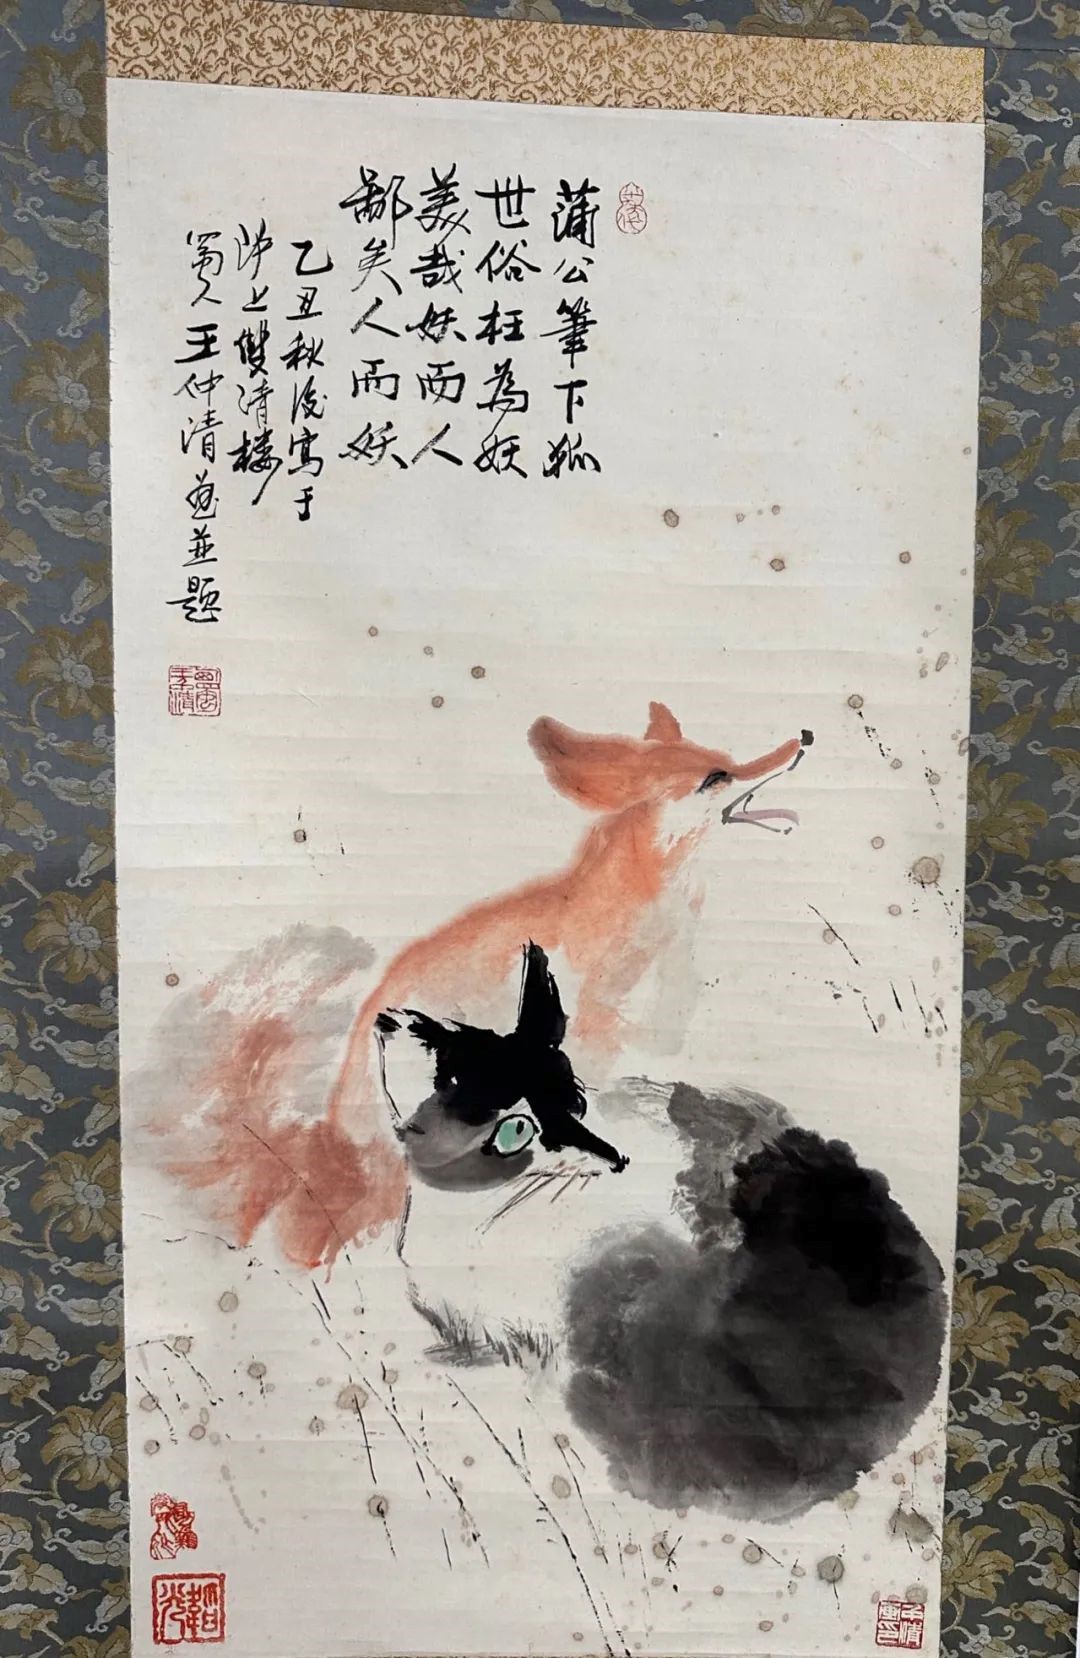 蒲公筆下狐
世俗枉為妖
美哉妖而人
鄙矣人而妖
乙丑秋後寫于
沪上雙清楼
蜀人王仲清画並題